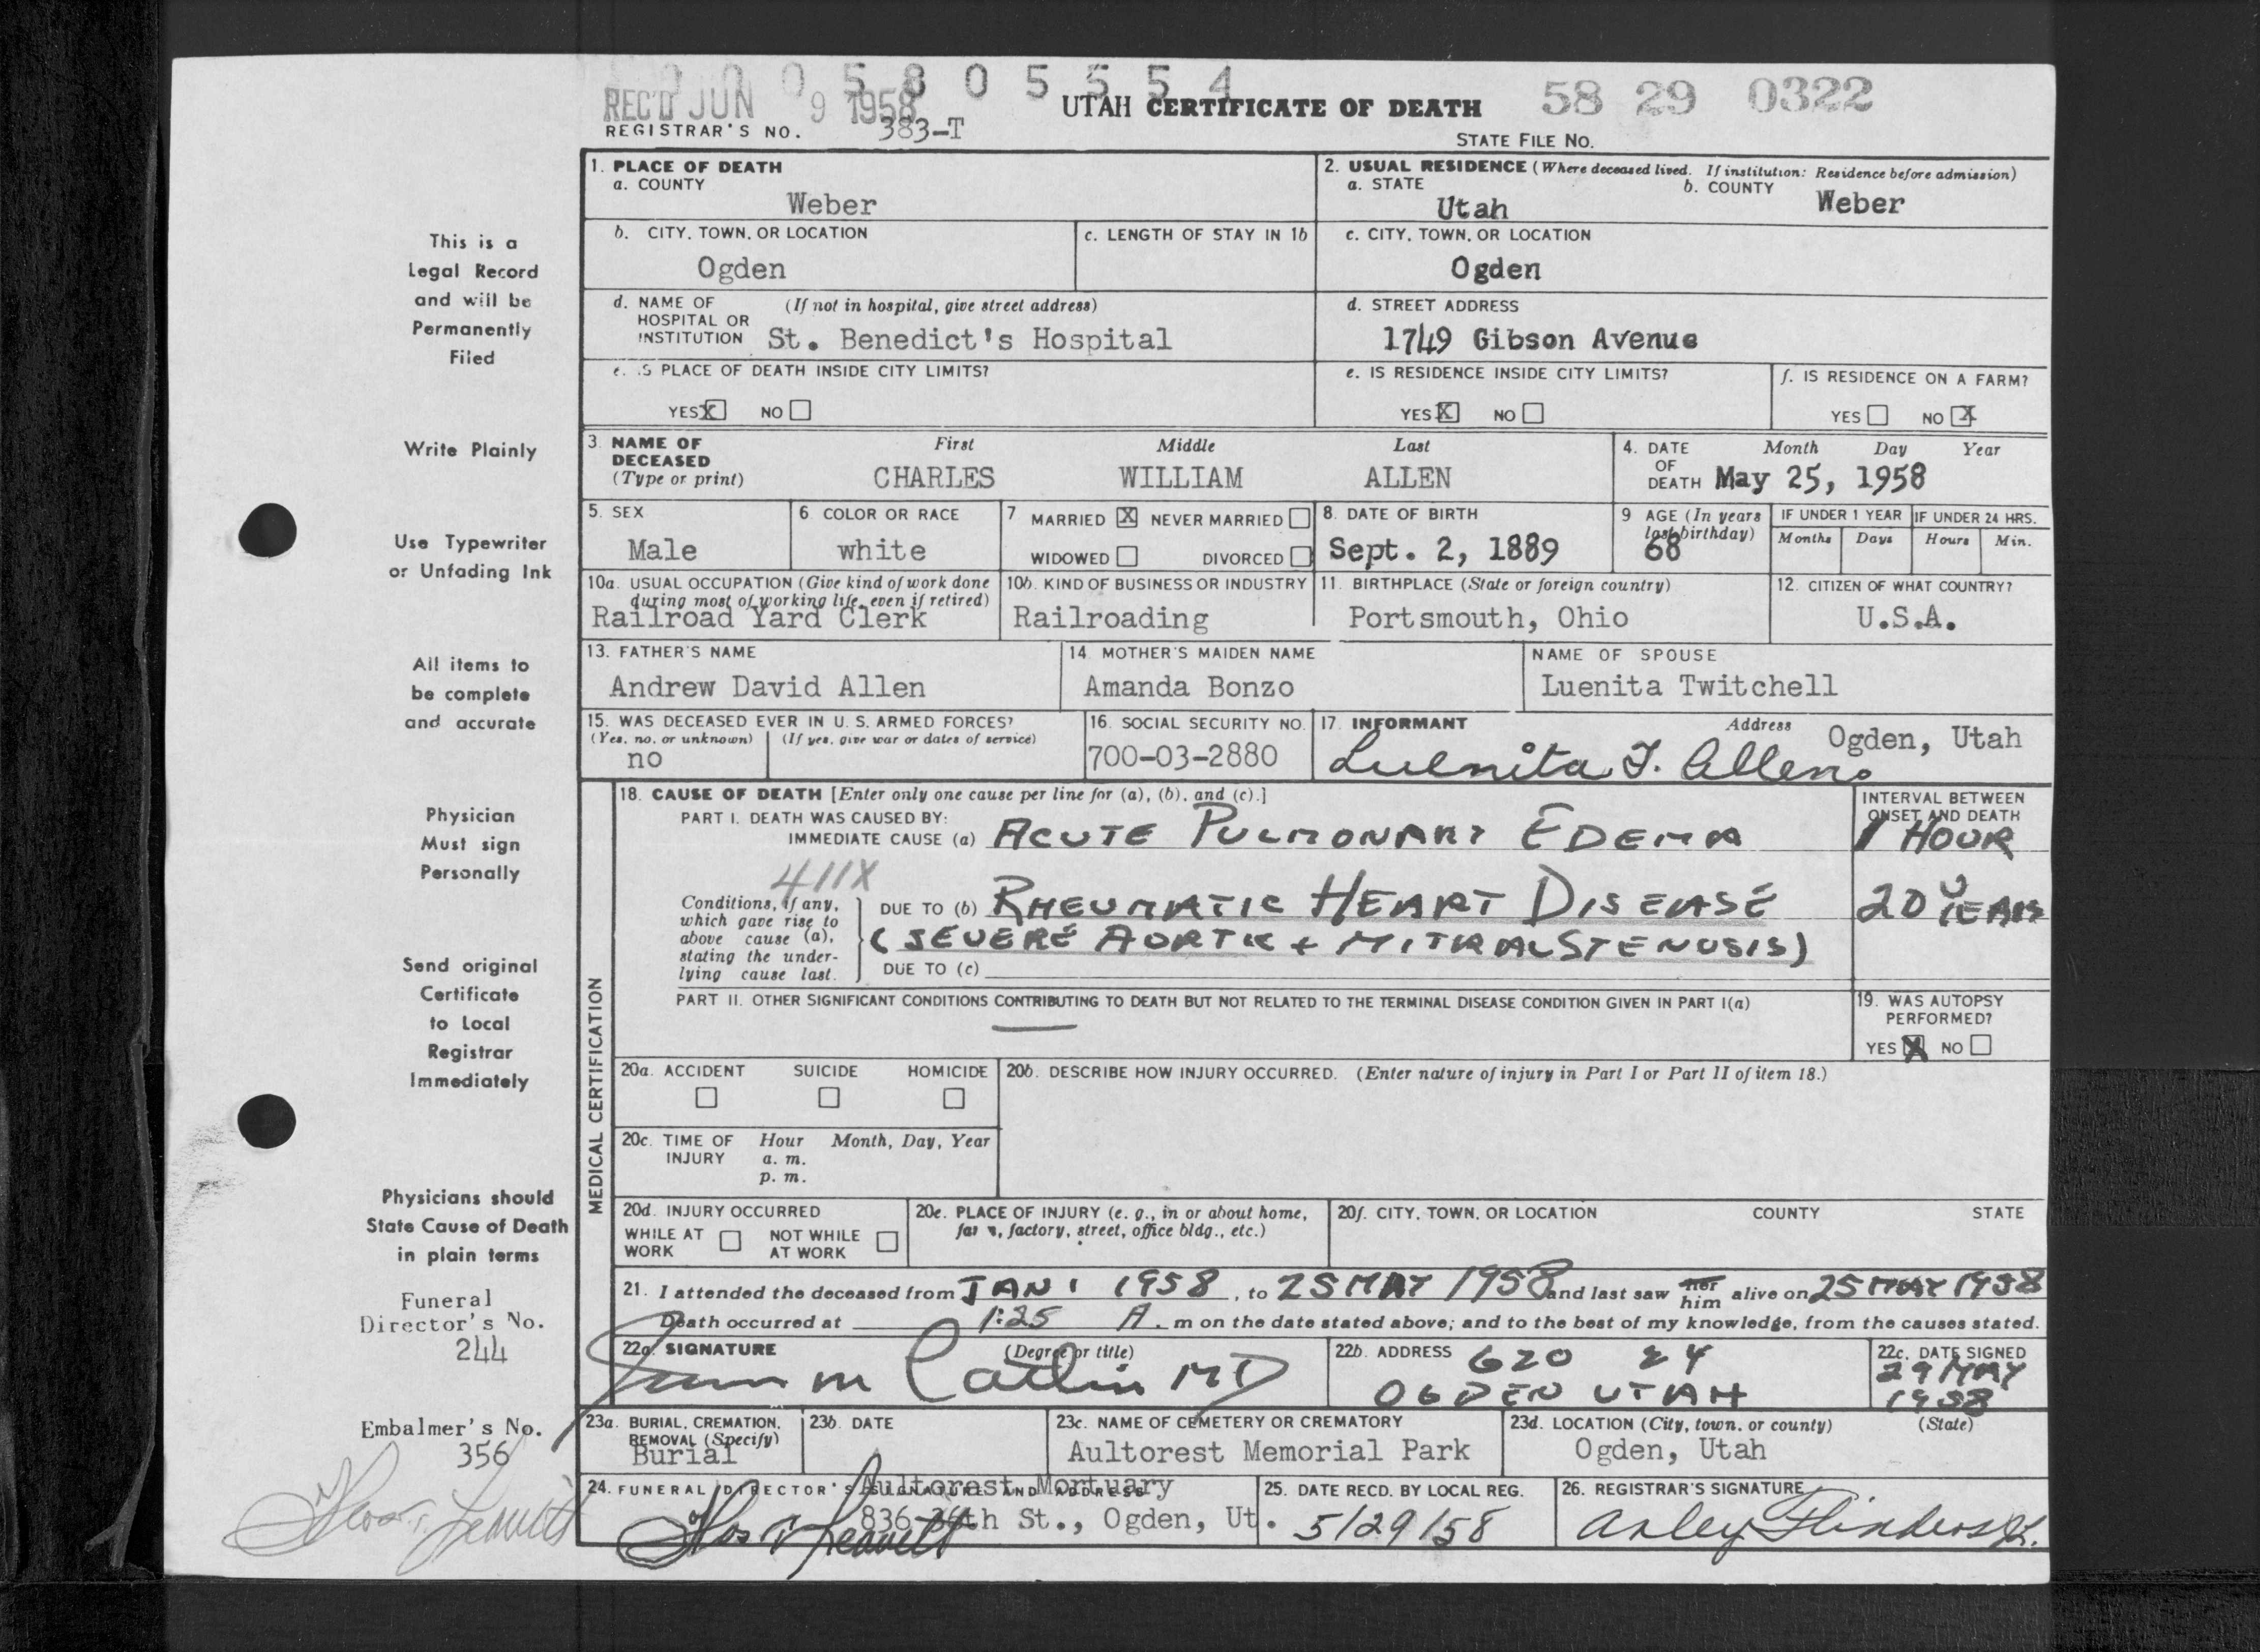 0 0 0 5 8 0 5 5 5 4
REC'D JUN 9 1958
UTAH CERTIFICATE OF DEATH
58 29 0322
REGISTRAR'S NO. 383-T
STATE FILE NO.
1. PLACE OF DEATH
a. COUNTY
Weber
2. USUAL RESIDENCE (Where deceased lived. If institution: Residence before admission)
a. STATE
Utah
b. COUNTY
Weber
b. CITY, TOWN, OR LOCATION
Ogden
c. LENGTH OF STAY IN 1b
c. CITY, TOWN, OR LOCATION
Ogden
d. NAME OF HOSPITAL OR INSTITUTION
(If not in hospital, give street address)
St. Benedict's Hospital
d. STREET ADDRESS
1749 Gibson Avenue
e. IS PLACE OF DEATH INSIDE CITY LIMITS?
YES X NO
e. IS RESIDENCE INSIDE CITY LIMITS?
YES X NO
f. IS RESIDENCE ON A FARM?
YES NO X
3. NAME OF DECEASED
(Type or print)
First
CHARLES
Middle
WILLIAM
Last
ALLEN
4. DATE OF DEATH
Month Day Year
May 25, 1958
5. SEX
Male
6. COLOR OR RACE
white
7 MARRIED X NEVER MARRIED
WIDOWED DIVORCED
8. DATE OF BIRTH
Sept. 2, 1889
9 AGE (In years last birthday)
68
IF UNDER 1 YEAR
Months Days
IF UNDER 24 HRS.
Hours Min.
10a. USUAL OCCUPATION (Give kind of work done
during most of working life, even if retired)
Railroad Yard Clerk
10b. KIND OF BUSINESS OR INDUSTRY
Railroading
11. BIRTHPLACE (State or foreign country)
Portsmouth, Ohio
12. CITIZEN OF WHAT COUNTRY?
U.S.A.
13. FATHER'S NAME
Andrew David Allen
14. MOTHER'S MAIDEN NAME
Amanda Bonzo
NAME OF SPOUSE
Luenita Twitchell
15. WAS DECEASED EVER IN U. S. ARMED FORCES?
(Yes, no, or unknown) (If yes, give war or dates of service)
no
16. SOCIAL SECURITY NO.
700-03-2880
17. INFORMANT
Address
Ogden, Utah
Luenita T. Allen
MEDICAL CERTIFICATION
18. CAUSE OF DEATH [Enter only one cause per line for (a), (b), and (c).]
PART I. DEATH WAS CAUSED BY:
IMMEDIATE CAUSE (a) ACUTE PULMONARY EDEMA
INTERVAL BETWEEN
ONSET AND DEATH
1 HOUR
411X
Conditions, if any,
which gave rise to
above cause (a),
stating the under-
lying cause last.
DUE TO (b) RHEUMATIC HEART DISEASE
20 YEARS
(SEVERE AORTIC + MITRAL STENOSIS)
DUE TO (c)
PART II. OTHER SIGNIFICANT CONDITIONS CONTRIBUTING TO DEATH BUT NOT RELATED TO THE TERMINAL DISEASE CONDITION GIVEN IN PART I(a)
19. WAS AUTOPSY PERFORMED?
YES X NO
20a. ACCIDENT SUICIDE HOMICIDE
20b. DESCRIBE HOW INJURY OCCURRED. (Enter nature of injury in Part I or Part II of item 18.)
20c. TIME OF INJURY
Hour Month, Day, Year
a. m.
p. m.
20d. INJURY OCCURRED
WHILE AT WORK
NOT WHILE AT WORK
20e. PLACE OF INJURY (e. g., in or about home,
farm, factory, street, office bldg., etc.)
20f. CITY, TOWN, OR LOCATION COUNTY STATE
21. I attended the deceased from JAN 1 1958, to 25 MAY 1958 and last saw her him alive on 25 MAY 1958
Death occurred at 1:25 A. m on the date stated above; and to the best of my knowledge, from the causes stated.
22a. SIGNATURE
(Degree or title)
m Catlin MD
22b. ADDRESS
620 24
OGDEN UTAH
22c. DATE SIGNED
29 MAY
1958
23a. BURIAL, CREMATION,
REMOVAL (Specify)
Burial
23b. DATE
23c. NAME OF CEMETERY OR CREMATORY
Aultorest Memorial Park
23d. LOCATION (City, town, or county) (State)
Ogden, Utah
24. FUNERAL DIRECTOR'S SIGNATURE AND ADDRESS
Aultorest Mortuary
836-36th St., Ogden, Ut.
Leavitt
25. DATE RECD. BY LOCAL REG.
5/29/58
26. REGISTRAR'S SIGNATURE
Arley Flinders Jr.
This is a
Legal Record
and will be
Permanently
Filed
Write Plainly
Use Typewriter
or Unfading Ink
All items to
be complete
and accurate
Physician
Must sign
Personally
Send original
Certificate
to Local
Registrar
Immediately
Physicians should
State Cause of Death
in plain terms
Funeral
Director's No.
244
Embalmer's No.
356
Leavitt